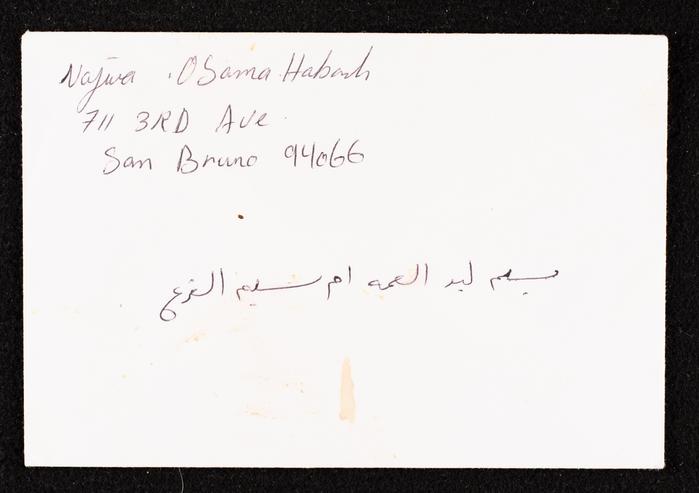 Najwa . Osama Habash
711 3RD Ave.
San Bruno 94066
يسلم ليد العمه ام سليم القرع